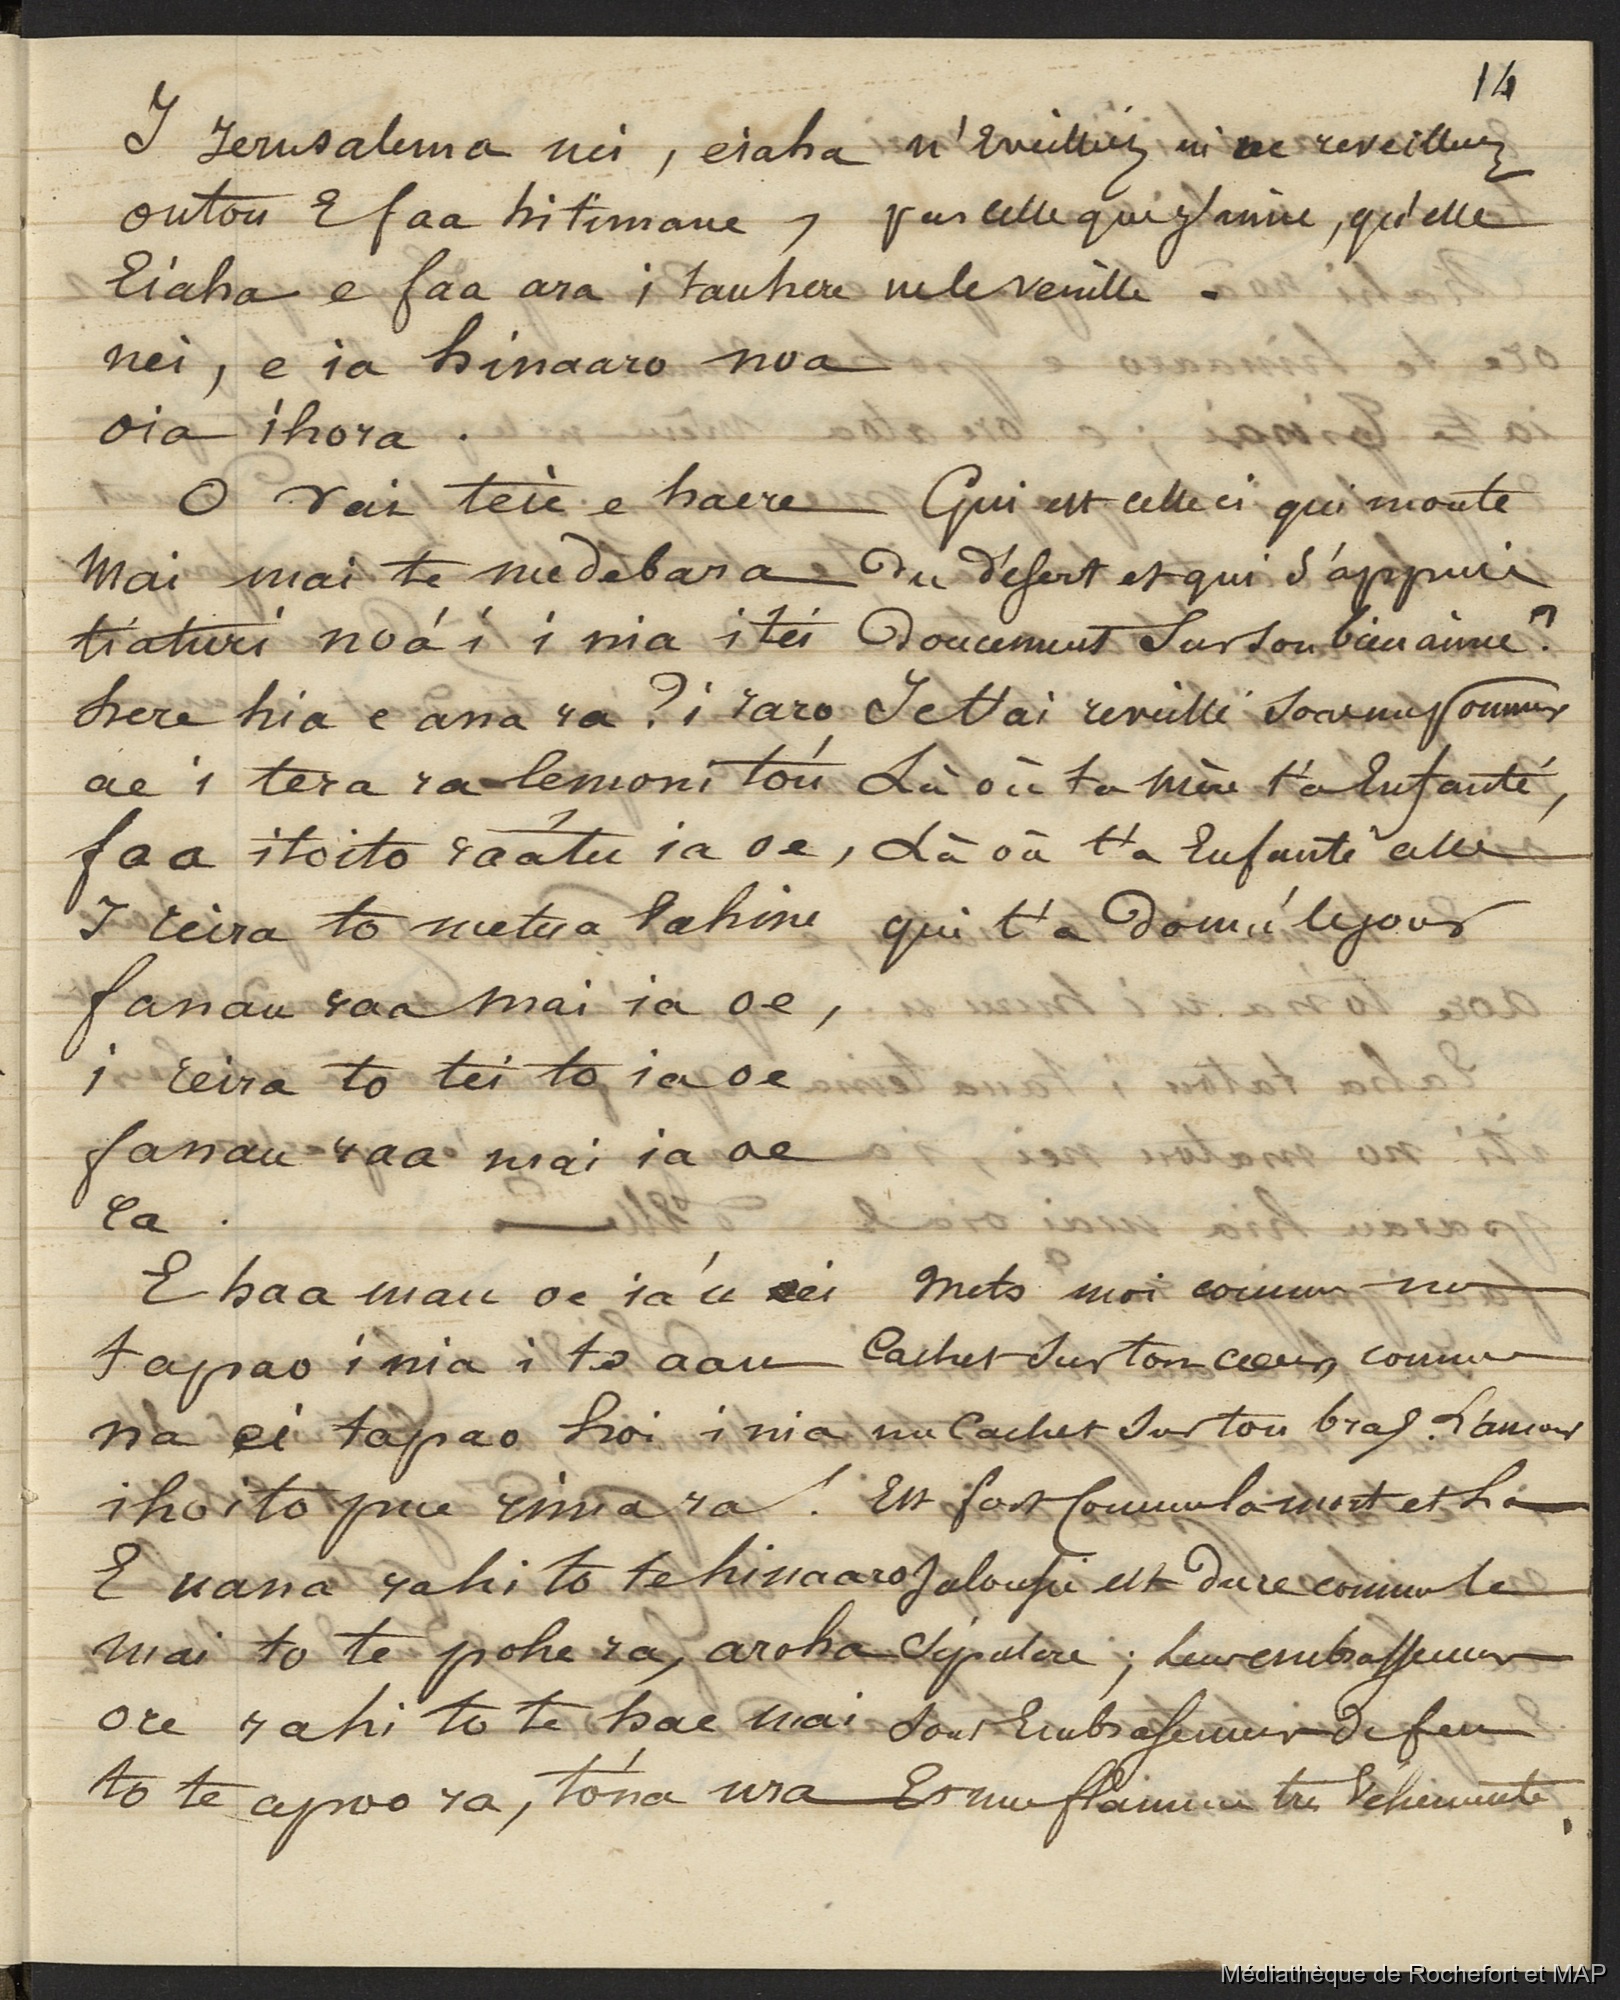 14
I Jerusalema nei, eiaha
outou E faa hitimaue,
Eiaha e faa ara i tauhere
nei, e ia hinaaro noa
oia ihora.
O vai teie e haere
Mai mai te medebara e
tiaturi noá i i nia i tei
here hia e ana ra? i raro
ae i tera ra lemoni toú
faa itoito raátu ia oe,
I reira to metua Vahine
fanau raa mai ia oe,
i reira to tei to ia oe
fanau raa mai ia oe
ra.
E haa mau oe ia'u ei
tapao i nia i to aau
na ei tapao hoi i nia
ihoito pue rima ra!
E uana rahi to te hinaaro
mai to te pohe ra, aroha
ore rahi to te hae mai
to te apoo ra, tóna ura
n'Eveilliez ni ne reveilliez
pas celle que j'aime, qu'elle
ne le veuille.
Qui est celle ci qui monte
Du désert et qui s'appuie
Doucement Sur son bien aimé?
Je t'ai reveillé sous un pommier
Là où ta Mère t'a Enfanté,
Là où t'a Enfanté celle
qui t'a Donné le jour
Mets moi comme un
Cachet Sur ton coeur, comme
un Cachet Sur ton bras. L'amour
Est fort Comme la mort et La
Jalousie est Dure comme le
Sépulcre; leurs embrassemens
sont Embrasemens De feu
Et une flamme très Véhémente.
Médiathèque de Rochefort et MAP